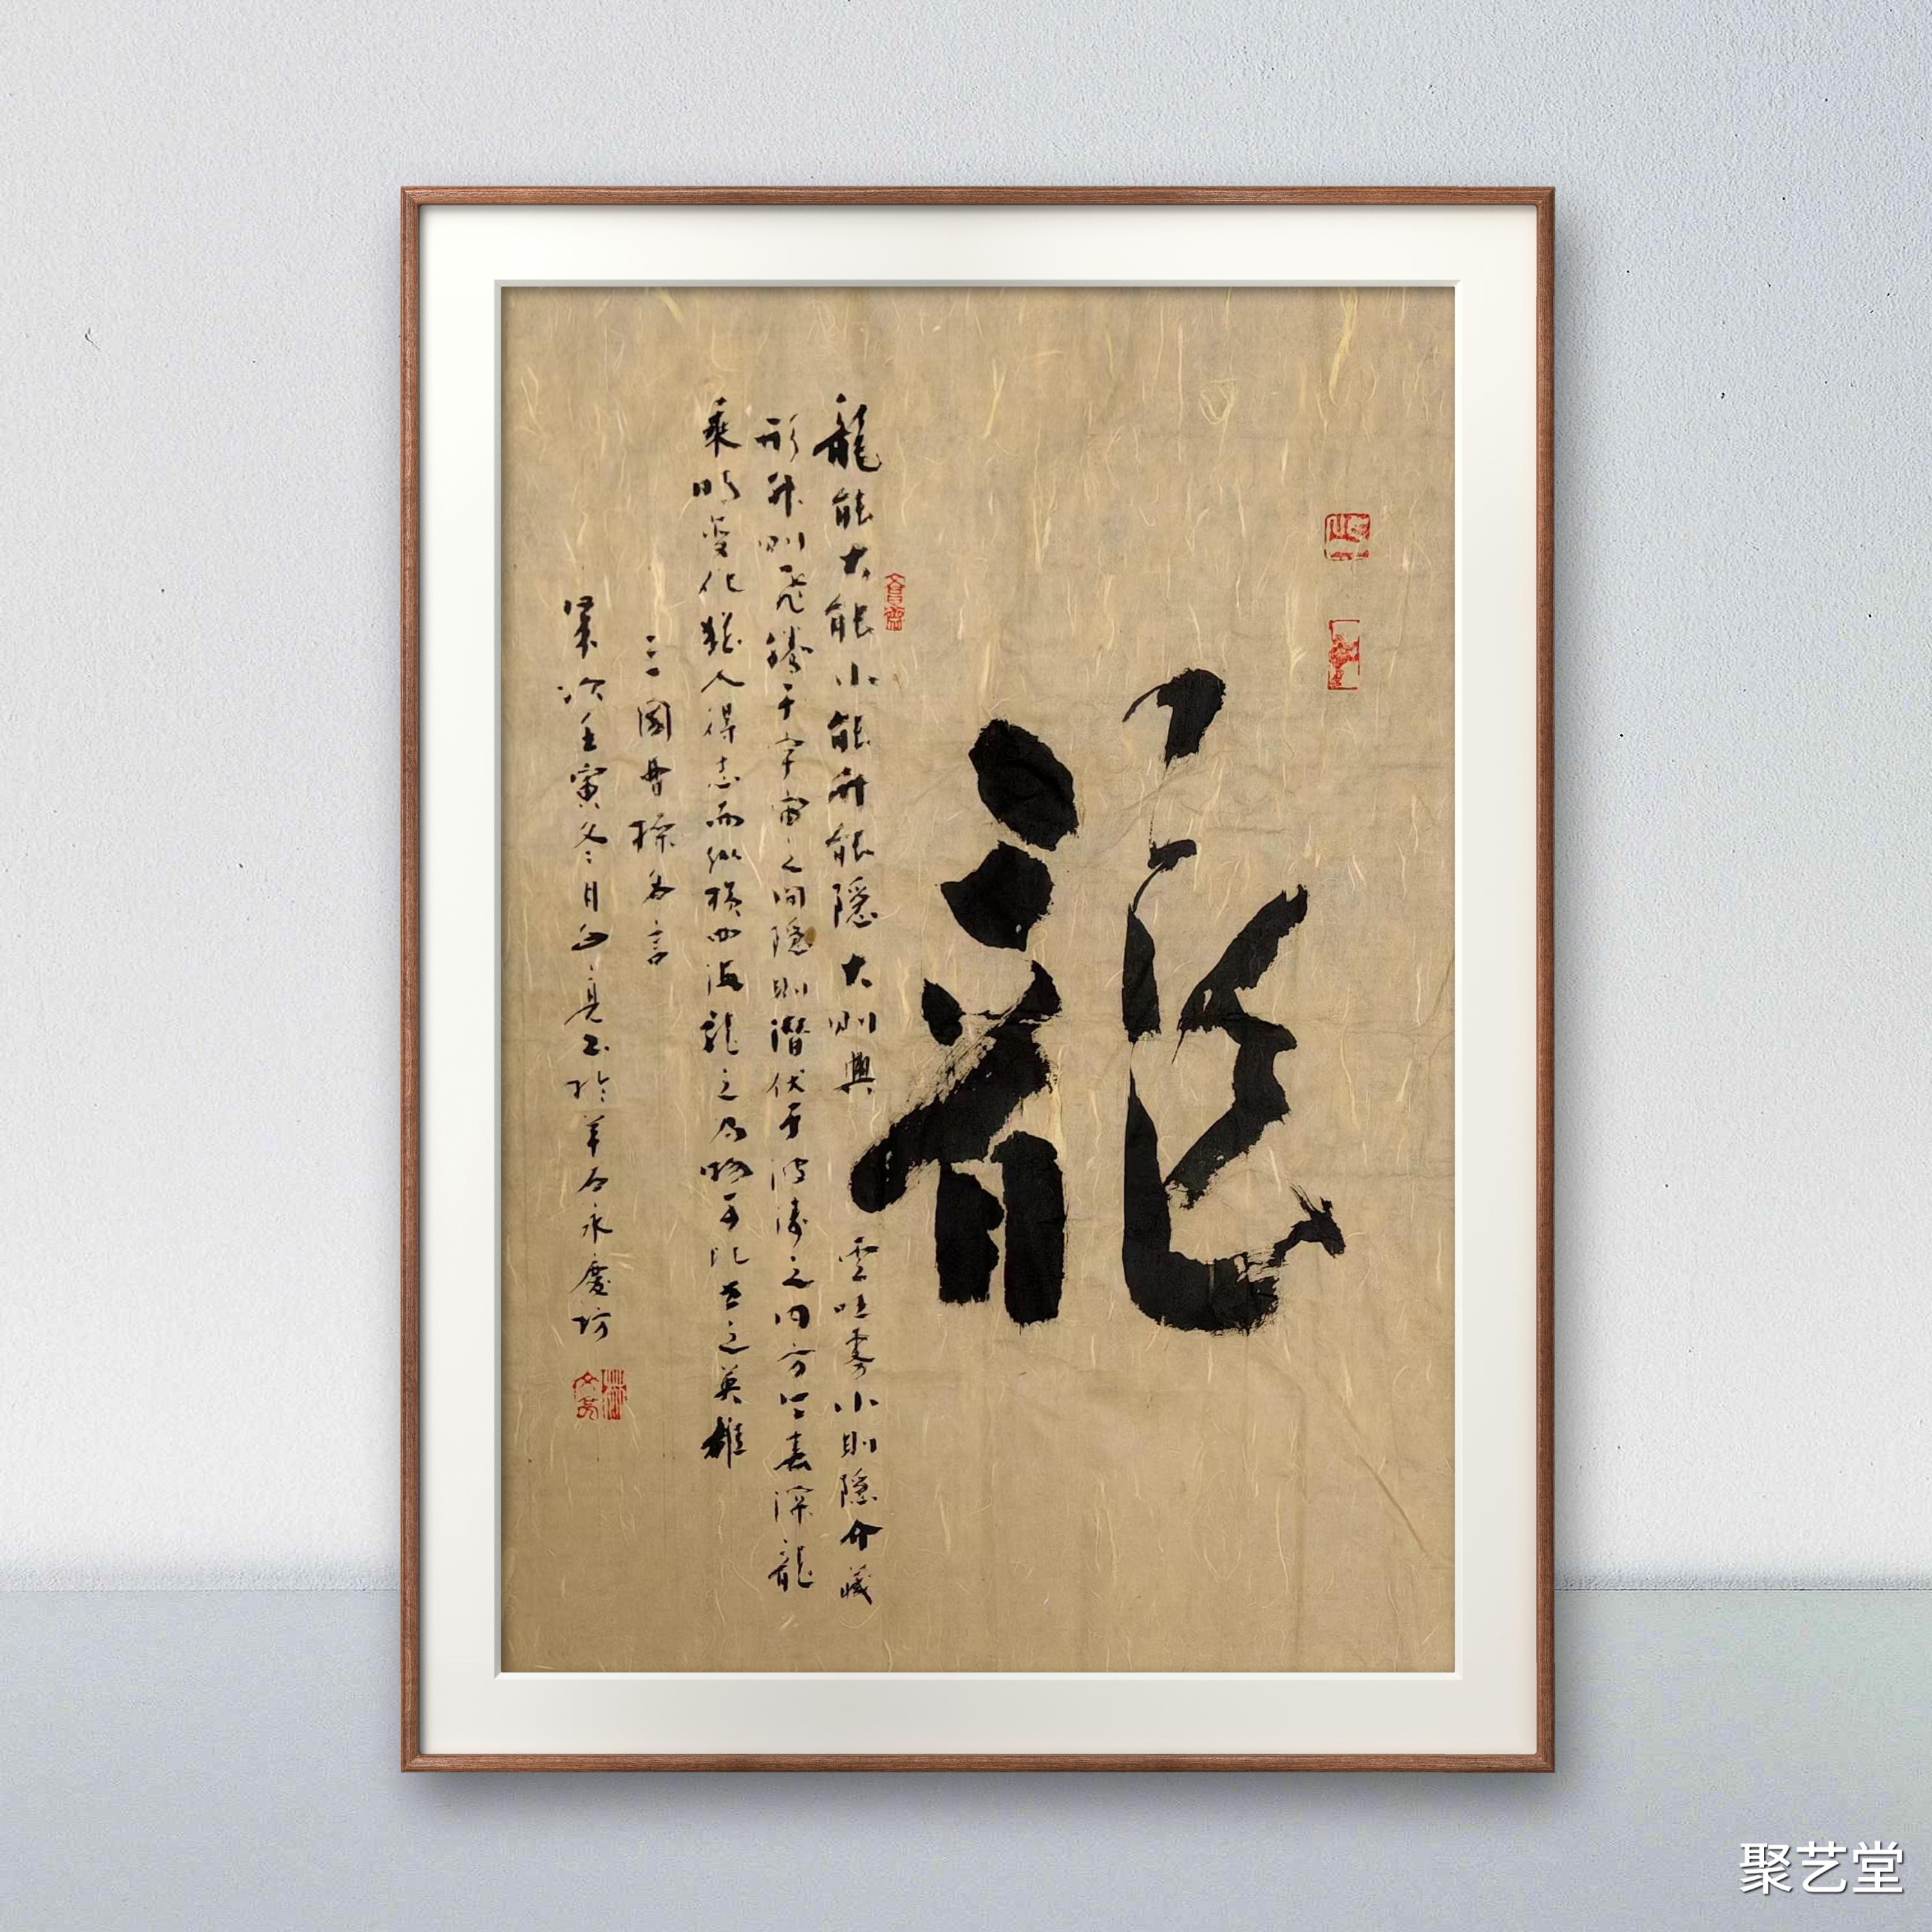 龍
龍能大能小能升能隱大則興雲吐霧小則隱介藏
形升則飛騰于宇宙之間隱則潛伏于波濤之内方今春深龍
乘時變化猶人得志而縱橫四海龍之為物可比世之英雄
三國曹操名言
歲次壬寅冬月文亮書於羊石永慶坊
聚艺堂